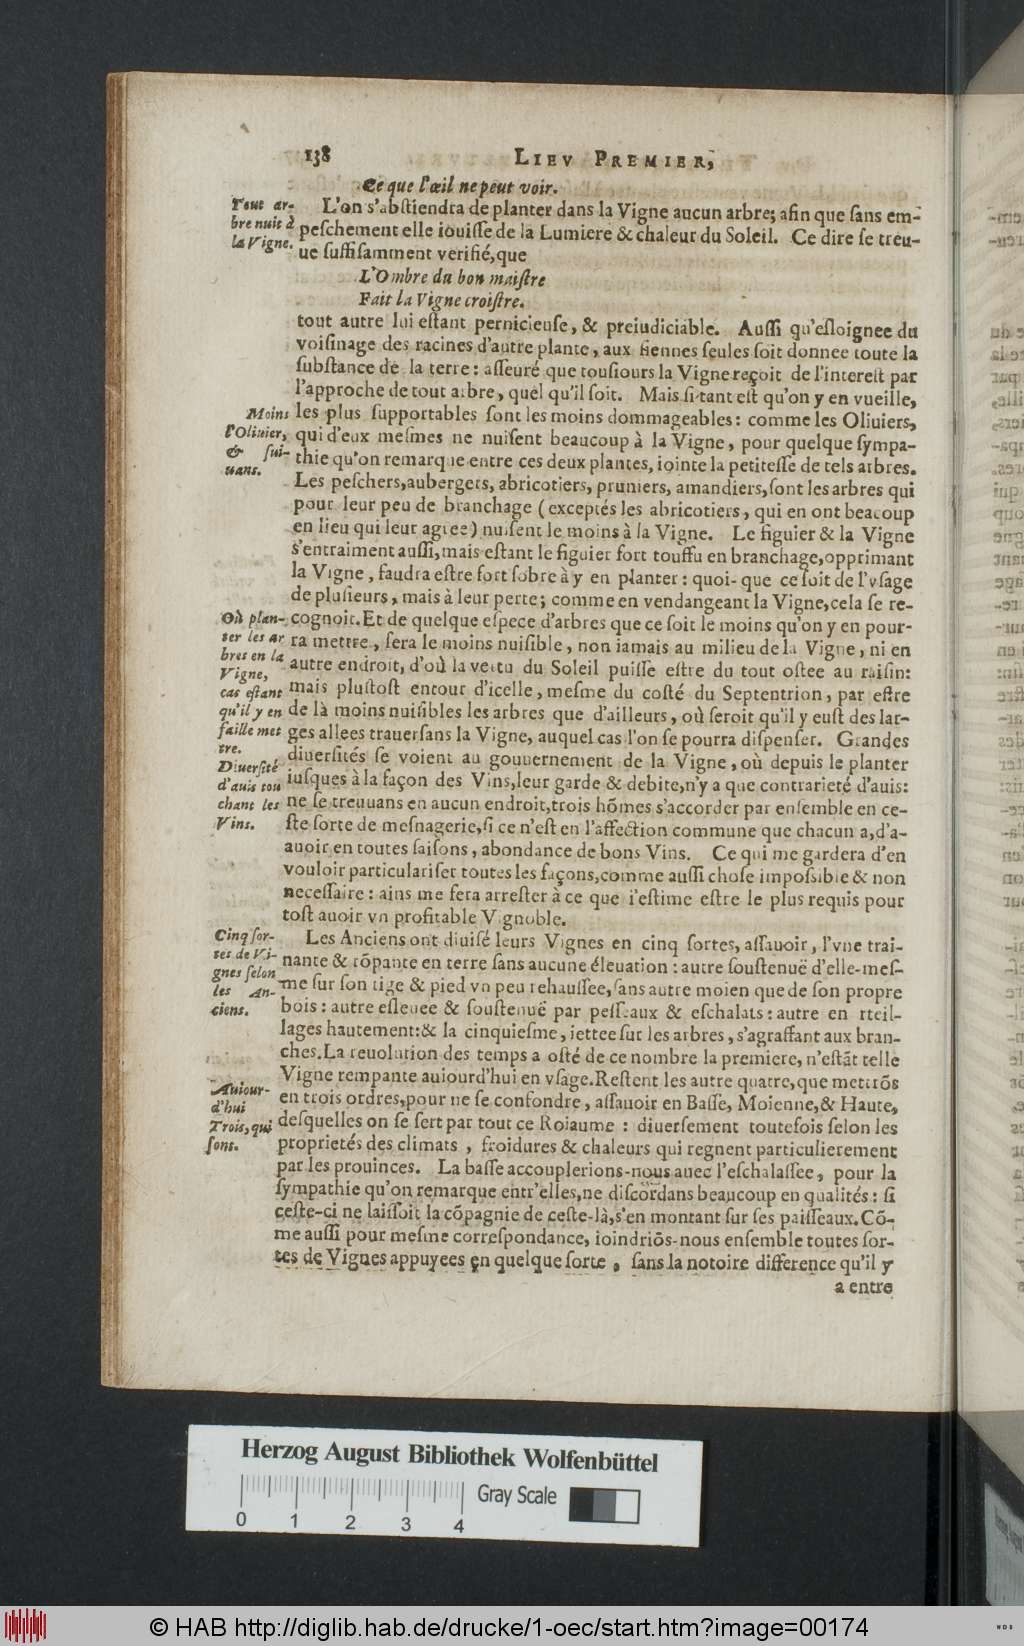 138 LIEV PREMIER,
Ce que l'œil ne peut voir.
Tout ar-
bre nuit à
la Vigne.
L'on s'abſtiendra de planter dans la Vigne aucun arbre; afin que ſans em-
peſchement elle iouiſſe de la Lumiere & chaleur du Soleil. Ce dire ſe treu-
ue ſuffiſamment verifié, que
L'Ombre du bon maiſtre
Fait la Vigne croiſtre.
tout autre lui eſtant pernicieuſe, & preiudiciable. Auſſi qu'eſloignee du
voiſinage des racines d'autre plante, aux ſiennes ſeules ſoit donnee toute la
ſubſtance de la terre: aſſeuré que touſiours la Vigne reçoit de l'intereſt par
l'approche de tout arbre, quel qu'il ſoit. Mais ſi tant eſt qu'on y en vueille,
Moins
l'Oliuier,
& ſui-
uans.
les plus ſupportables ſont les moins dommageables: comme les Oliuiers,
qui d'eux meſmes ne nuiſent beaucoup à la Vigne, pour quelque ſympa-
thie qu'on remarque entre ces deux plantes, iointe la petiteſſe de tels arbres.
Les peſchers, aubergers, abricotiers, pruniers, amandiers, ſont les arbres qui
pour leur peu de branchage (exceptés les abricotiers, qui en ont beacoup
en lieu qui leur agree) nuiſent le moins à la Vigne. Le figuier & la Vigne
s'entraiment auſſi, mais eſtant le figuier fort touffu en branchage, opprimant
la Vigne, faudra eſtre fort ſobre à y en planter: quoi-que ce ſoit de l'vſage
de pluſieurs, mais à leur perte; comme en vendangeant la Vigne, cela ſe re-
Où plan-
ter les ar
bres en la
Vigne,
cas eſtant
qu'il y en
faille met
tre.
cognoit. Et de quelque eſpece d'arbres que ce ſoit le moins qu'on y en pour-
ra mettre, ſera le moins nuiſible, non iamais au milieu de la Vigne, ni en
autre endroit, d'où la vertu du Soleil puiſſe eſtre du tout oſtee au raiſin:
mais pluſtoſt entour d'icelle, meſme du coſté du Septentrion, par eſtre
de là moins nuiſibles les arbres que d'ailleurs, où ſeroit qu'il y euſt des lar-
ges allees trauerſans la Vigne, auquel cas l'on ſe pourra diſpenſer. Grandes
Diuerſité
d'auis tou
chant les
Vins.
diuerſités ſe voient au gouuernement de la Vigne, où depuis le planter
iuſques à la façon des Vins, leur garde & debite, n'y a que contrarieté d'auis:
ne ſe treuuans en aucun endroit, trois hõmes s'accorder par enſemble en ce-
ſte ſorte de meſnagerie, ſi ce n'eſt en l'affection commune que chacun a, d'a-
auoir en toutes ſaiſons, abondance de bons Vins. Ce qui me gardera d'en
vouloir particulariſer toutes les façons, comme auſſi choſe impoſsible & non
neceſſaire: ains me fera arreſter à ce que i'eſtime eſtre le plus requis pour
toſt auoir vn profitable Vignoble.
Cinq ſor-
tes de Vi-
gnes ſelon
les An-
ciens.
Les Anciens ont diuiſé leurs Vignes en cinq ſortes, aſſauoir, l'vne trai-
nante & rõpante en terre ſans aucune éleuation: autre ſouſtenuë d'elle-meſ-
me ſur ſon tige & pied vn peu rehauſſee, ſans autre moien que de ſon propre
bois: autre eſleuee & ſouſtenuë par peſſeaux & eſchalats: autre en treil-
lages hautement: & la cinquieſme, iettee ſur les arbres, s'agraffant aux bran-
ches. La reuolution des temps a oſté de ce nombre la premiere, n'eſtãt telle
Vigne rempante auiourd'hui en vſage. Reſtent les autre quatre, que mettrõs
Auiour-
d'hui
Trois, qui
ſont.
en trois ordres, pour ne ſe confondre, aſſauoir en Baſſe, Moienne, & Haute,
deſquelles on ſe ſert par tout ce Roiaume: diuerſement toutefois ſelon les
proprietés des climats, froidures & chaleurs qui regnent particulierement
par les prouinces. La baſſe accouplerions-nous auec l'eſchalaſſee, pour la
ſympathie qu'on remarque entr'elles, ne diſcordans beaucoup en qualités: ſi
ceſte-ci ne laiſſoit la cõpagnie de ceſte-là, s'en montant ſur ſes paiſſeaux. Cõ-
me auſſi pour meſme correſpondance, ioindriõs-nous enſemble toutes ſor-
tes de Vignes appuyees en quelque ſorte, ſans la notoire difference qu'il y
a entre
Herzog August Bibliothek Wolfenbüttel
Gray Scale
0 1 2 3 4
© HAB http://diglib.hab.de/drucke/1-oec/start.htm?image=00174